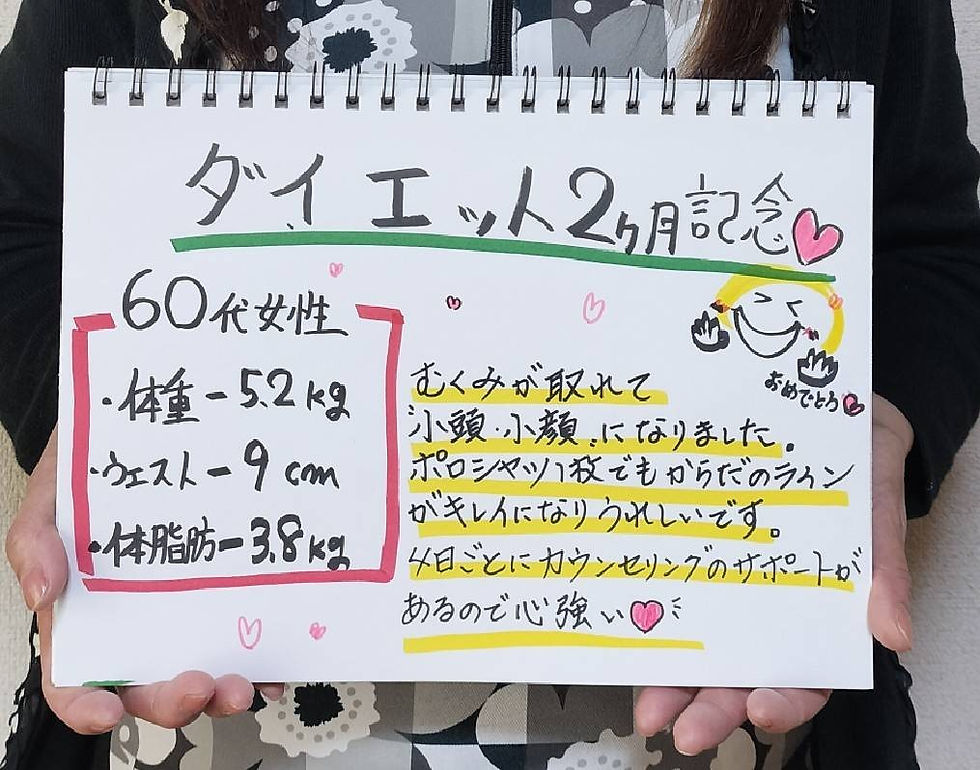 ダイエット2ヶ月記念
60代女性
・体重-5.2kg
・ウエスト-9cm
・体脂肪-3.8kg
おめでとう
むくみが取れて
小頭・小顔になりました。
ポロシャツ1枚でもからだのライン
がキレイになりうれしいです。
4日ごとにカウンセリングのサポートが
あるので心強い